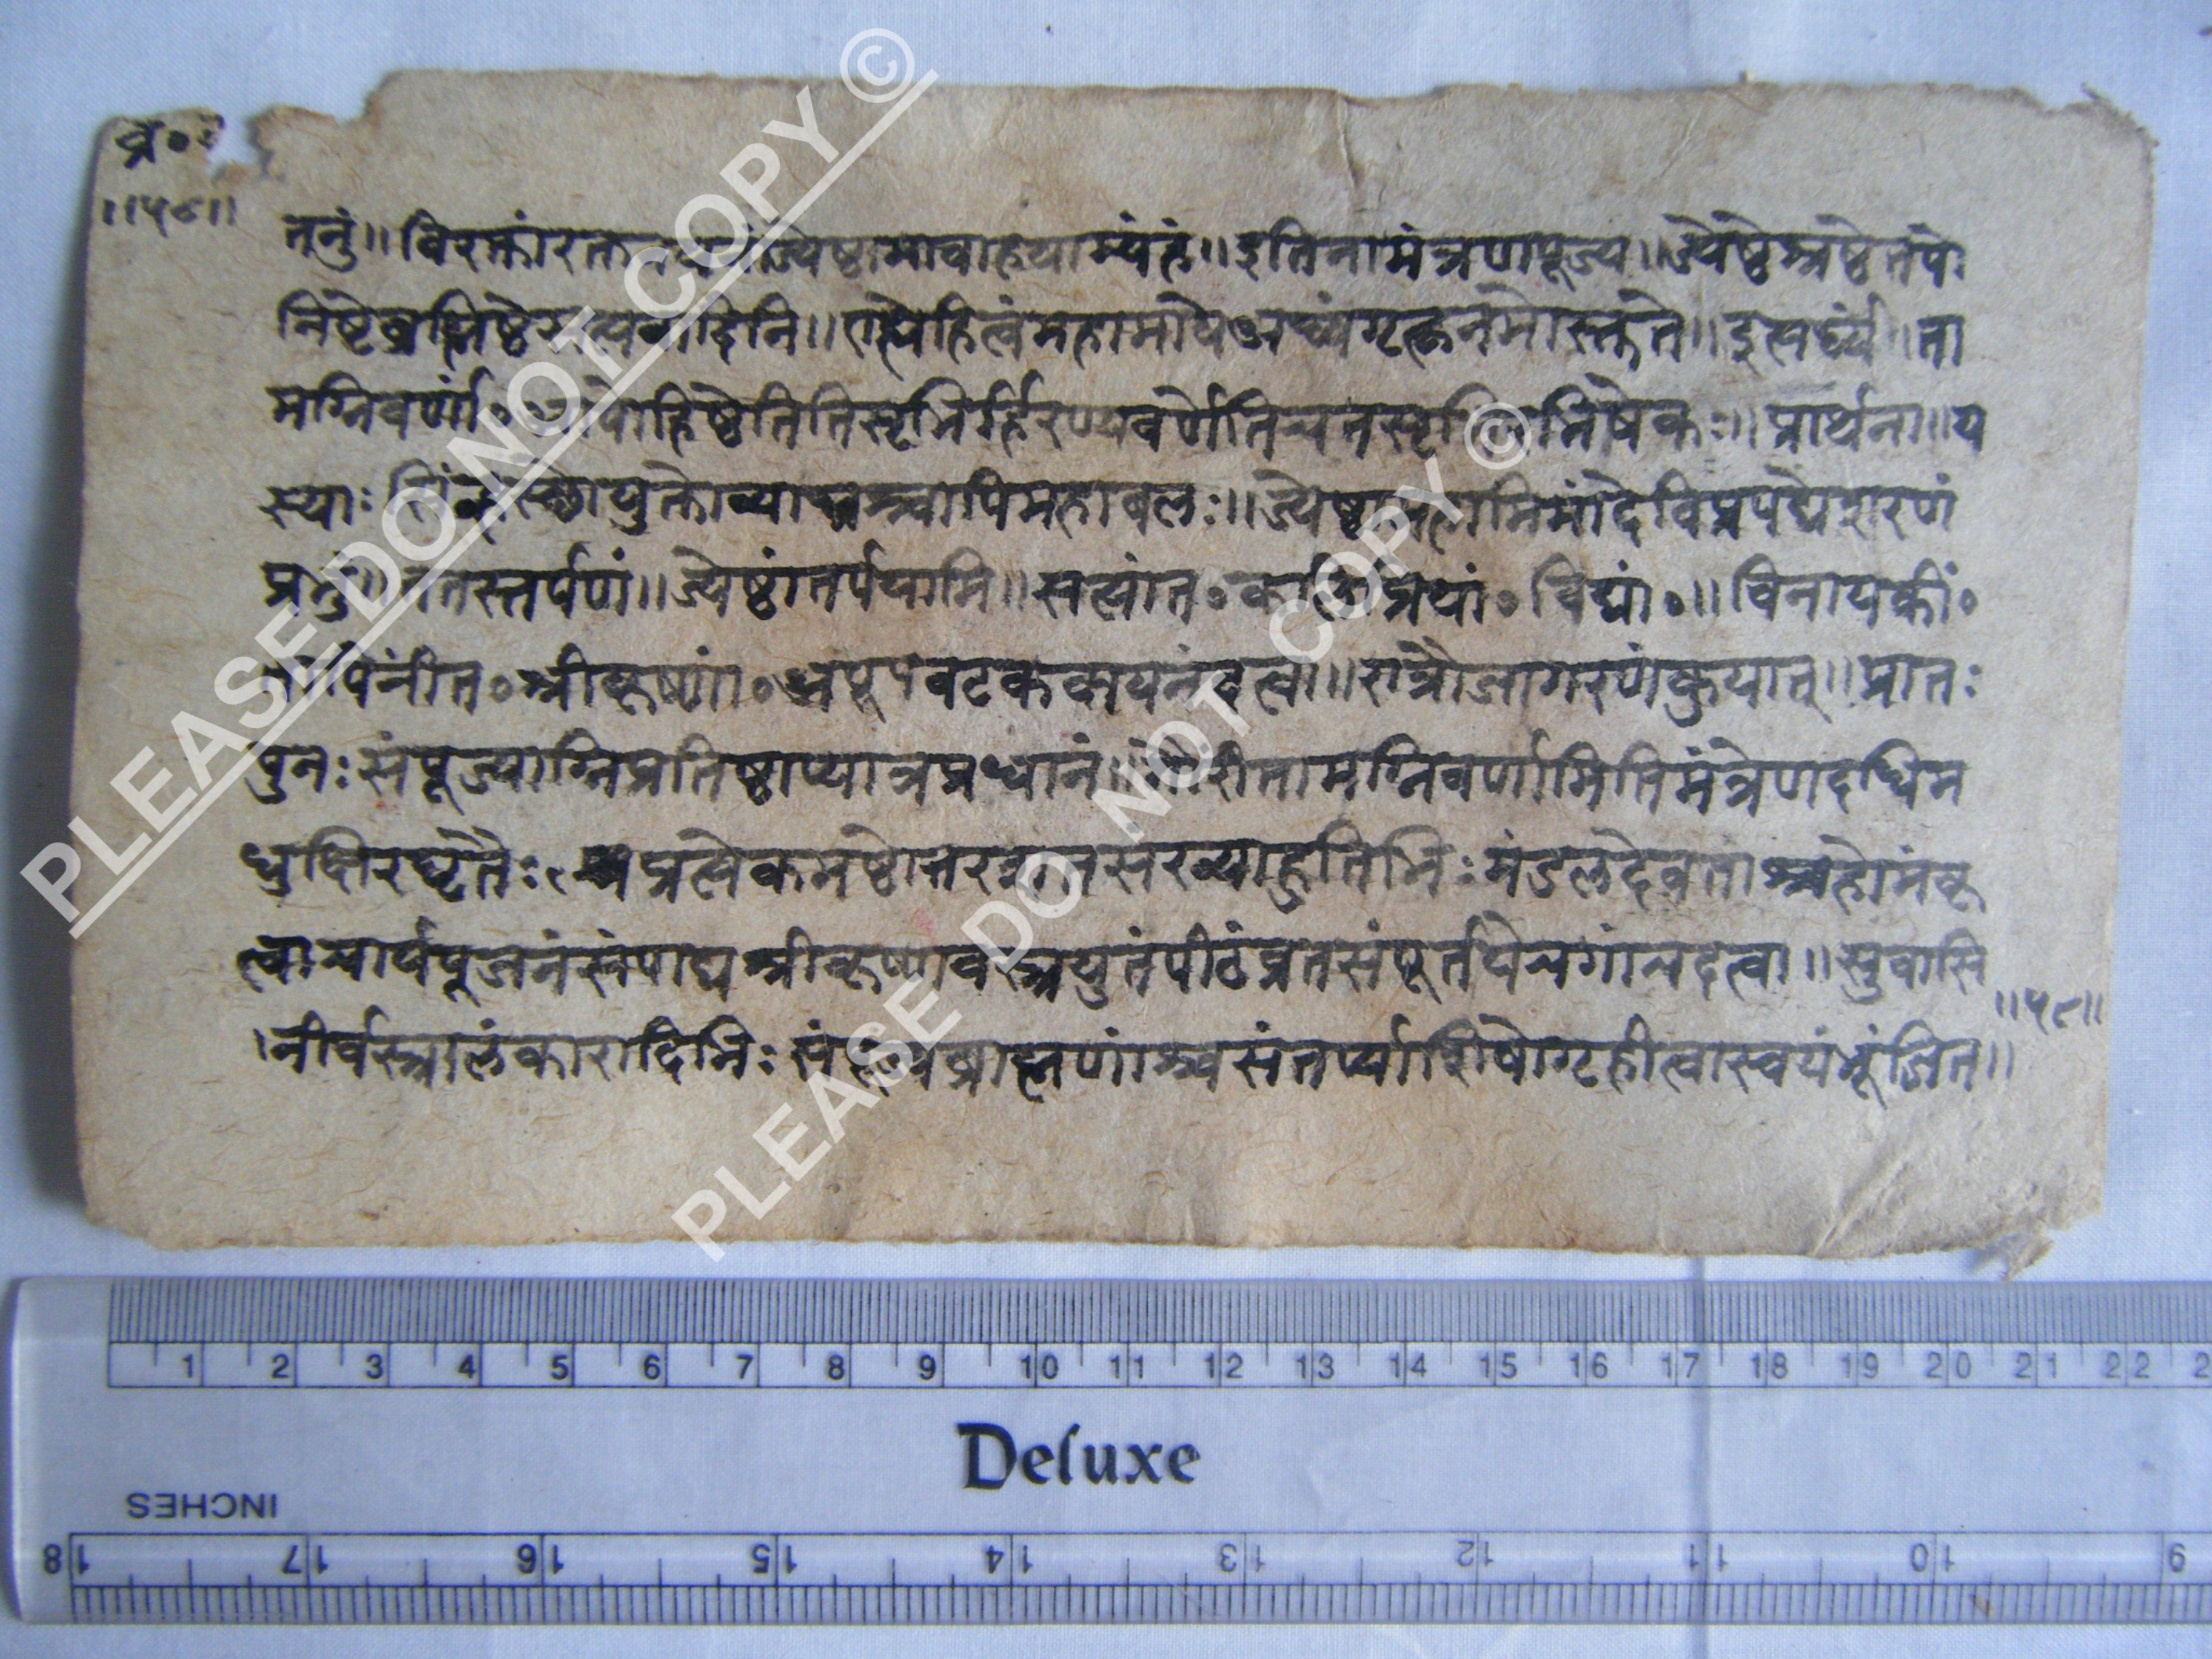 व्र॰
॥५९॥
तनुं॥ विरक्तांरक्त ज्येष्ठामावाहयाम्यंहं॥ इतिनामंत्रणपूज्य॥ ज्येष्ठेश्रेष्ठेतपो
निष्टेब्रह्मिष्ठेसत्यवादिनि॥ एह्येहित्वंमहामाये अर्घ्यंगृह्णनमोस्तुते॥ इत्यर्घ्यं॥ ता
मग्निवर्णां॰ आपोहिष्ठेतितिसृभिर्हिरण्यवर्णेतिचतसृ भिषेकः॥ प्रार्थना॥ य
स्याः युक्तोव्याघ्रश्चापिमहाबलः॥ ज्येष्ठामहामिमांदेविप्रपद्येशरणं
ततस्तर्पणं॥ ज्येष्ठांतर्पयामि॥ सत्यांत॰ कलिप्रियां॰ विद्यां॰॥ विनायकीं॰
त॰ श्रीकृष्णां॰ अपूपवटक दत्वा॥ रात्रौजागरणंकुयात्॥ प्रातः
पुनः संपूज्याग्निप्रतिष्ठाप्यात्रप्रधानं॥ तामग्निवर्णामितिमंत्रेणदधिम
धुक्षिरघृतैः प्रत्येकमष्टोत्तरशतसंख्याहुतिभिः मंडलदेवताश्चहोमंकृ
त्वाचार्यपूजनंसंपाद्यश्रीकृष्णावस्त्रयुतंपीठंव्रतसंपूर्तयेचगांचदत्वा॥ सुवासि
॥५९॥
नीर्वस्त्रालंकारादिभिः संपूज्यब्राह्मणांश्चसंतर्प्याशिषोगृहीत्वास्वयंभूंजित॥
PLEASE DO NOT COPY ©
PLEASE DO NOT COPY ©
1 2 3 4 5 6 7 8 9 10 11 12 13 14 15 16 17 18 19 20 21 22 2
Deluxe
INCHES
18 17 16 15 14 13 12 11 10 9